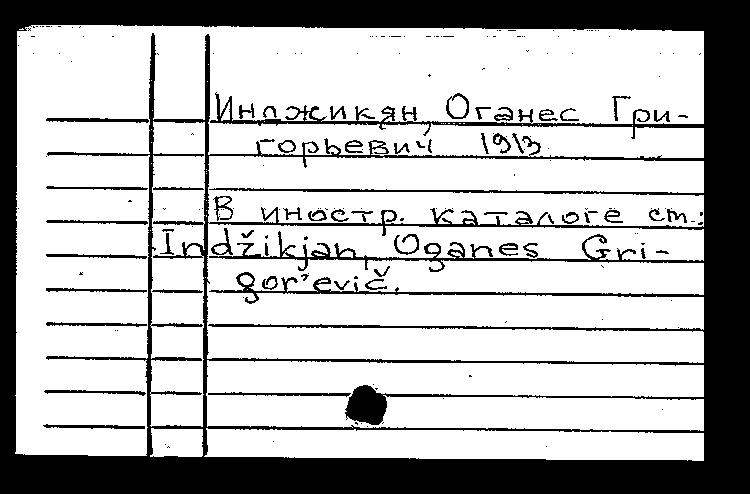 Инджикян, Оганес Гри-
горьевич 1913
В иностр. каталоге ст.:
Indžikjan, Oganes Gri-
gor'evič.